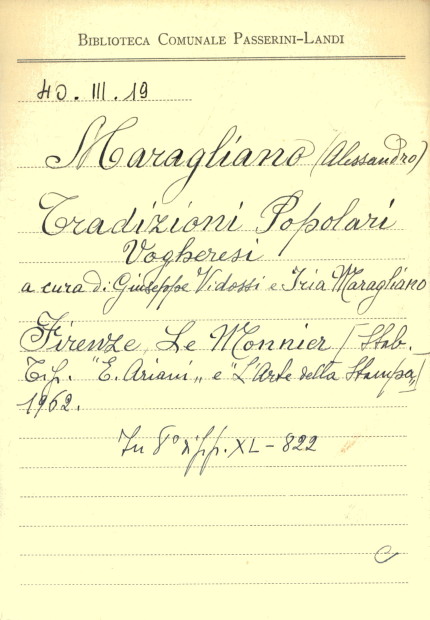 BIBLIOTECA COMUNALE PASSERINI-LANDI
40. III. 19
Maragliano (Alessandro)
Tradizioni Popolari
Vogheresi
a cura di Giuseppe Vidossi e Iria Maragliano
Firenze, Le Monnier (Stab.
Tip. "E. Ariani„ e "L'Arte della Stampa„)
1962.
In 8° pp. XL - 822
C